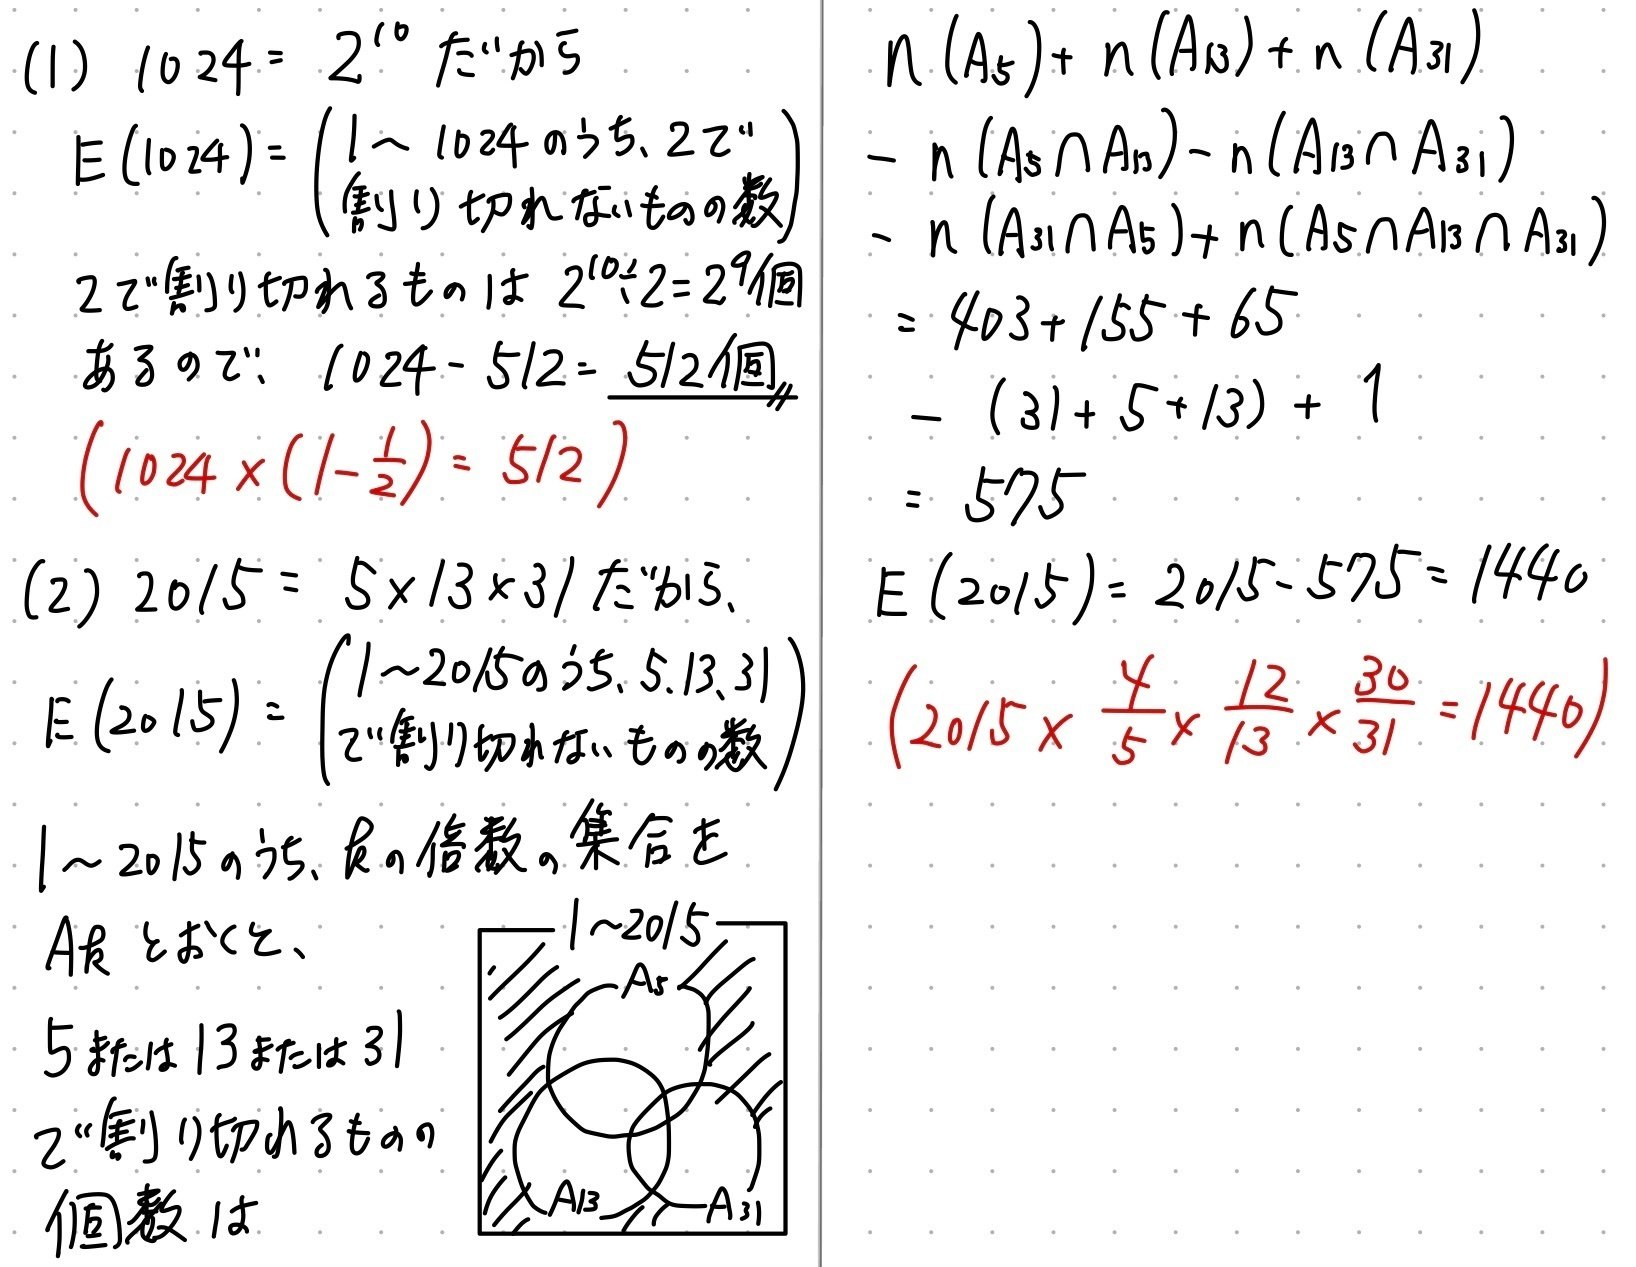 (1) 1024 = 2^10 だから
E(1024) = (1～1024のうち、2で
割り切れないものの数)
2で割り切れるものは 2^10÷2=2^9個
あるので、 1024 - 512 = 512個
(1024 × (1 - 1/2) = 512)
(2) 2015 = 5×13×31 だから、
E(2015) = (1～2015のうち、5、13、31
で割り切れないものの数)
1～2015のうち、kの倍数の集合を
Ak とおくと、
5または13または31
で割り切れるものの
個数は
1～2015
A5
A13
A31
n(A5) + n(A13) + n(A31)
- n(A5∩A13) - n(A13∩A31)
- n(A31∩A5) + n(A5∩A13∩A31)
= 403 + 155 + 65
- (31 + 5 + 13) + 1
= 575
E(2015) = 2015 - 575 = 1440
(2015 × 4/5 × 12/13 × 30/31 = 1440)